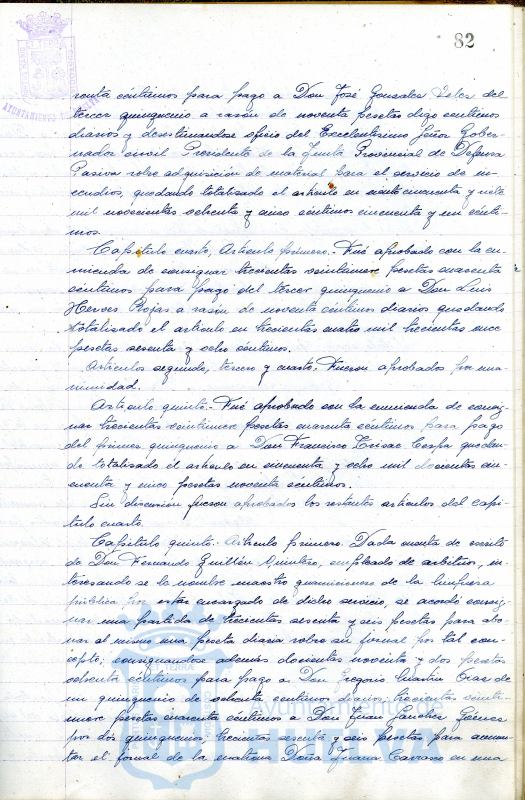 82
AYUNTAMIENTO
renta céntimos para pago a Don José Gonzalez Velez del
tercer quinquenio a razón de noventa pesetas digo centimos
diarios y desestimandose oficio del Excelentísimo Señor Gober-
nador civil Presidente de la Junta Provincial de Defensa
Pasiva sobre adquisición de material para el servicio de in-
cendios, quedando totalizado el artículo en ciento cincuenta y siete
mil novecientas ochenta y cinco céntimos cincuenta y un cénti-
mos.
Capítulo cuarto, Artículo primero. Fué aprobado con la en-
mienda de consignar trescientas veintinueve pesetas cuarenta
céntimos para pago del tercer quinquenio a Don Luis
Hervés Rojas a razón de noventa céntimos diarios quedando
totalizado el artículo en trescientas cuatro mil trescientas once
pesetas sesenta y ocho céntimos.
Artículos segundo, tercero y cuarto. Fueron aprobados por una-
nimidad.
Artículo quinto. Fué aprobado con la enmienda de consig-
nar trescientas veintinueve pesetas cuarenta céntimos para pago
del primer quinquenio a Don Francisco quedan-
do totalizado el artículo en cincuenta y ocho mil doscientas cin-
cuenta y cinco pesetas noventa céntimos.
Sin discusion fueron aprobados los restantes artículos del capí-
tulo cuarto.
Capítulo quinto. Artículo primero. Dada cuenta de escrito
de Don Fernando Guillén Quintero, empleado de arbitrios, in-
teresando se le nombre maestro guarnicionero de la limpieza
pública por estar encargado de dicho servicio, se acordó consig-
nar una partida de trescientas sesenta y seis pesetas para abo-
nar al mismo una peseta diaria sobre su jornal por tal con-
cepto; consignandose además doscientas noventa y dos pesetas
ochenta céntimos para pago a Don Gregorio Martin Diaz de
un quinquenio de ochenta centimos diarios; trescientas veinti-
nueve pesetas cuarenta centimos a Don Juan Sanchez Gómez
por dos quinquenios; trescientas sesenta y seis pesetas para aumen-
tar el jornal de la matrona Doña Juana Carrasco en una
Ayuntamiento de
HUELVA